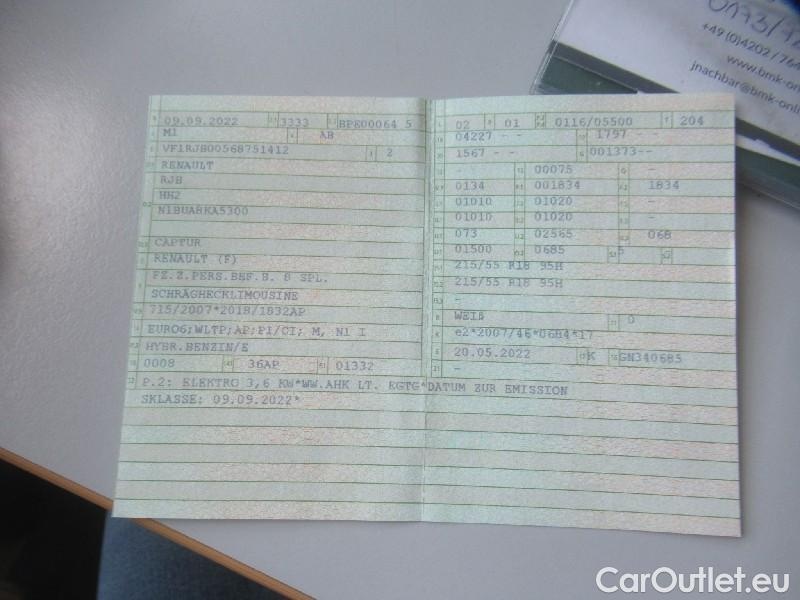 +49(0)4202 / 764
www.bmk-onli
jnachbar@bmk-onli
09.09.2022 3333 BPE00064 5
M1 AB
VF1RJB00568751412 2
RENAULT
RJB
HH2
N1BUABKA5300
CAPTUR
RENAULT (F)
FZ.Z.PERS.BEF.B. 8 SPL.
SCHRÄGHECKLIMOUSINE
715/2007*2018/1832AP
EURO6;WLTP;AP;PI/CI; M, N1 I
HYBR.BENZIN/E
0008 36AP 01332
P.2: ELEKTRO 3,6 KW*WW.AHK LT. EGTG*DATUM ZUR EMISSION
SKLASSE: 09.09.2022*
02 01 0116/05500 204
04227 - - 1797 - -
1567 - - 001373--
- 00075 -
0134 001834 1834
01010 01020 -
01010 01020 -
073 02565 068
01500 0685 5 -
215/55 R18 95H
215/55 R18 95H
-
WEIß 0
e2*2007/46*0684*17
20.05.2022 K GN340685
-
CarOutlet.eu